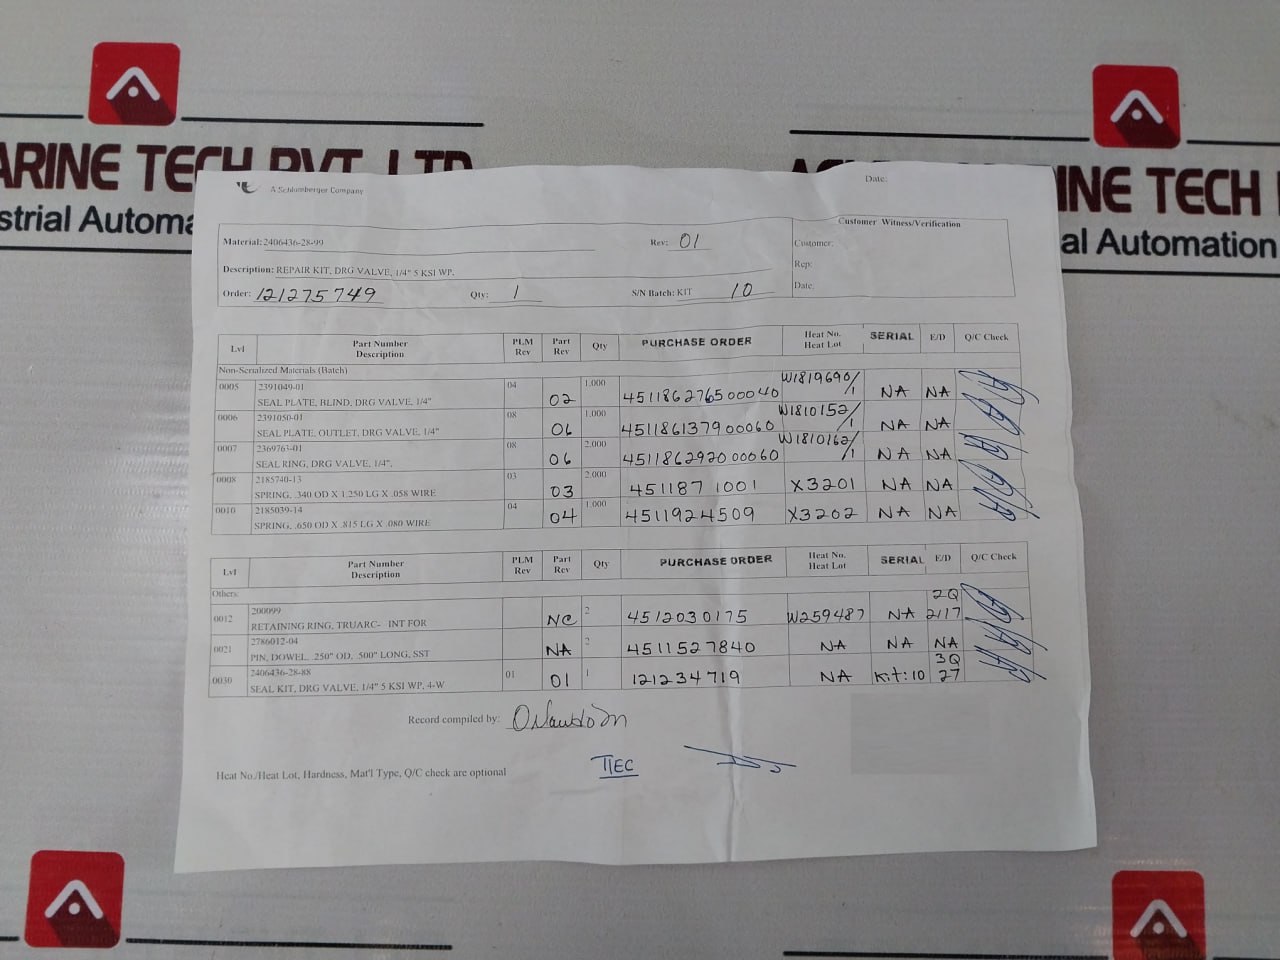 ARINE TECH PVT. LTD
strial Automa
INE TECH
al Automation
A Schlumberger Company
Date:
Customer Witness/Verification
Material: 2406436-28-99 Rev: 01 Customer:
Description: REPAIR KIT, DRG VALVE, 1/4" 5 KSI WP, Rep:
Order: 121275749 Qty: 1 S/N Batch: KIT 10 Date:
Lvl Part Number Description PLM Rev Part Rev Qty PURCHASE ORDER Heat No. Heat Lot SERIAL E/D Q/C Check
Non-Serialized Materials (Batch)
0005 2391049-01 04 02 1.000 451186276500040 W1819690/1 NA NA
SEAL PLATE, BLIND, DRG VALVE, 1/4"
0006 2391050-01 08 06 1.000 451186137900060 W1810152/1 NA NA
SEAL PLATE, OUTLET, DRG VALVE, 1/4"
0007 2369763-01 08 06 2.000 451186292000060 W1810162/1 NA NA
SEAL RING, DRG VALVE, 1/4",
0008 2185740-13 03 03 2.000 4511871001 X3201 NA NA
SPRING, .340 OD X 1.250 LG X .058 WIRE
0010 2185039-14 04 04 1.000 4511924509 X3202 NA NA
SPRING, .650 OD X .815 LG X .080 WIRE
Lvl Part Number Description PLM Rev Part Rev Qty PURCHASE ORDER Heat No. Heat Lot SERIAL E/D Q/C Check
Others:
0012 200099 NC 2 4512030175 W259487 NA 2Q 2117
RETAINING RING, TRUARC- INT FOR
0021 2786012-04 NA 2 4511527840 NA NA NA
PIN, DOWEL, .250" OD, .500" LONG, SST
0030 2406436-28-88 01 01 1 121234719 NA Kit:10 3Q 27
SEAL KIT, DRG VALVE, 1/4" 5 KSI WP, 4-W
Record compiled by:
Heat No./Heat Lot, Hardness, Mat'l Type, Q/C check are optional